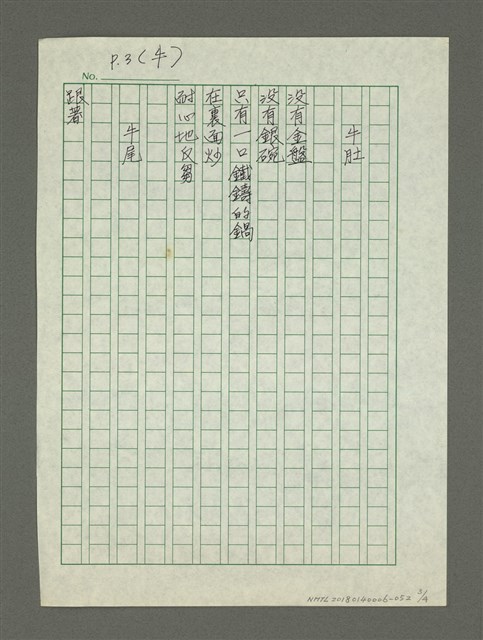 P.3(牛)
No.
牛肚
没有金盤
没有銀碗
只有一口鐵鑄的鍋
在裏面炒
耐心地反芻
牛尾
跟著
NMTL20180140006-052 3/4